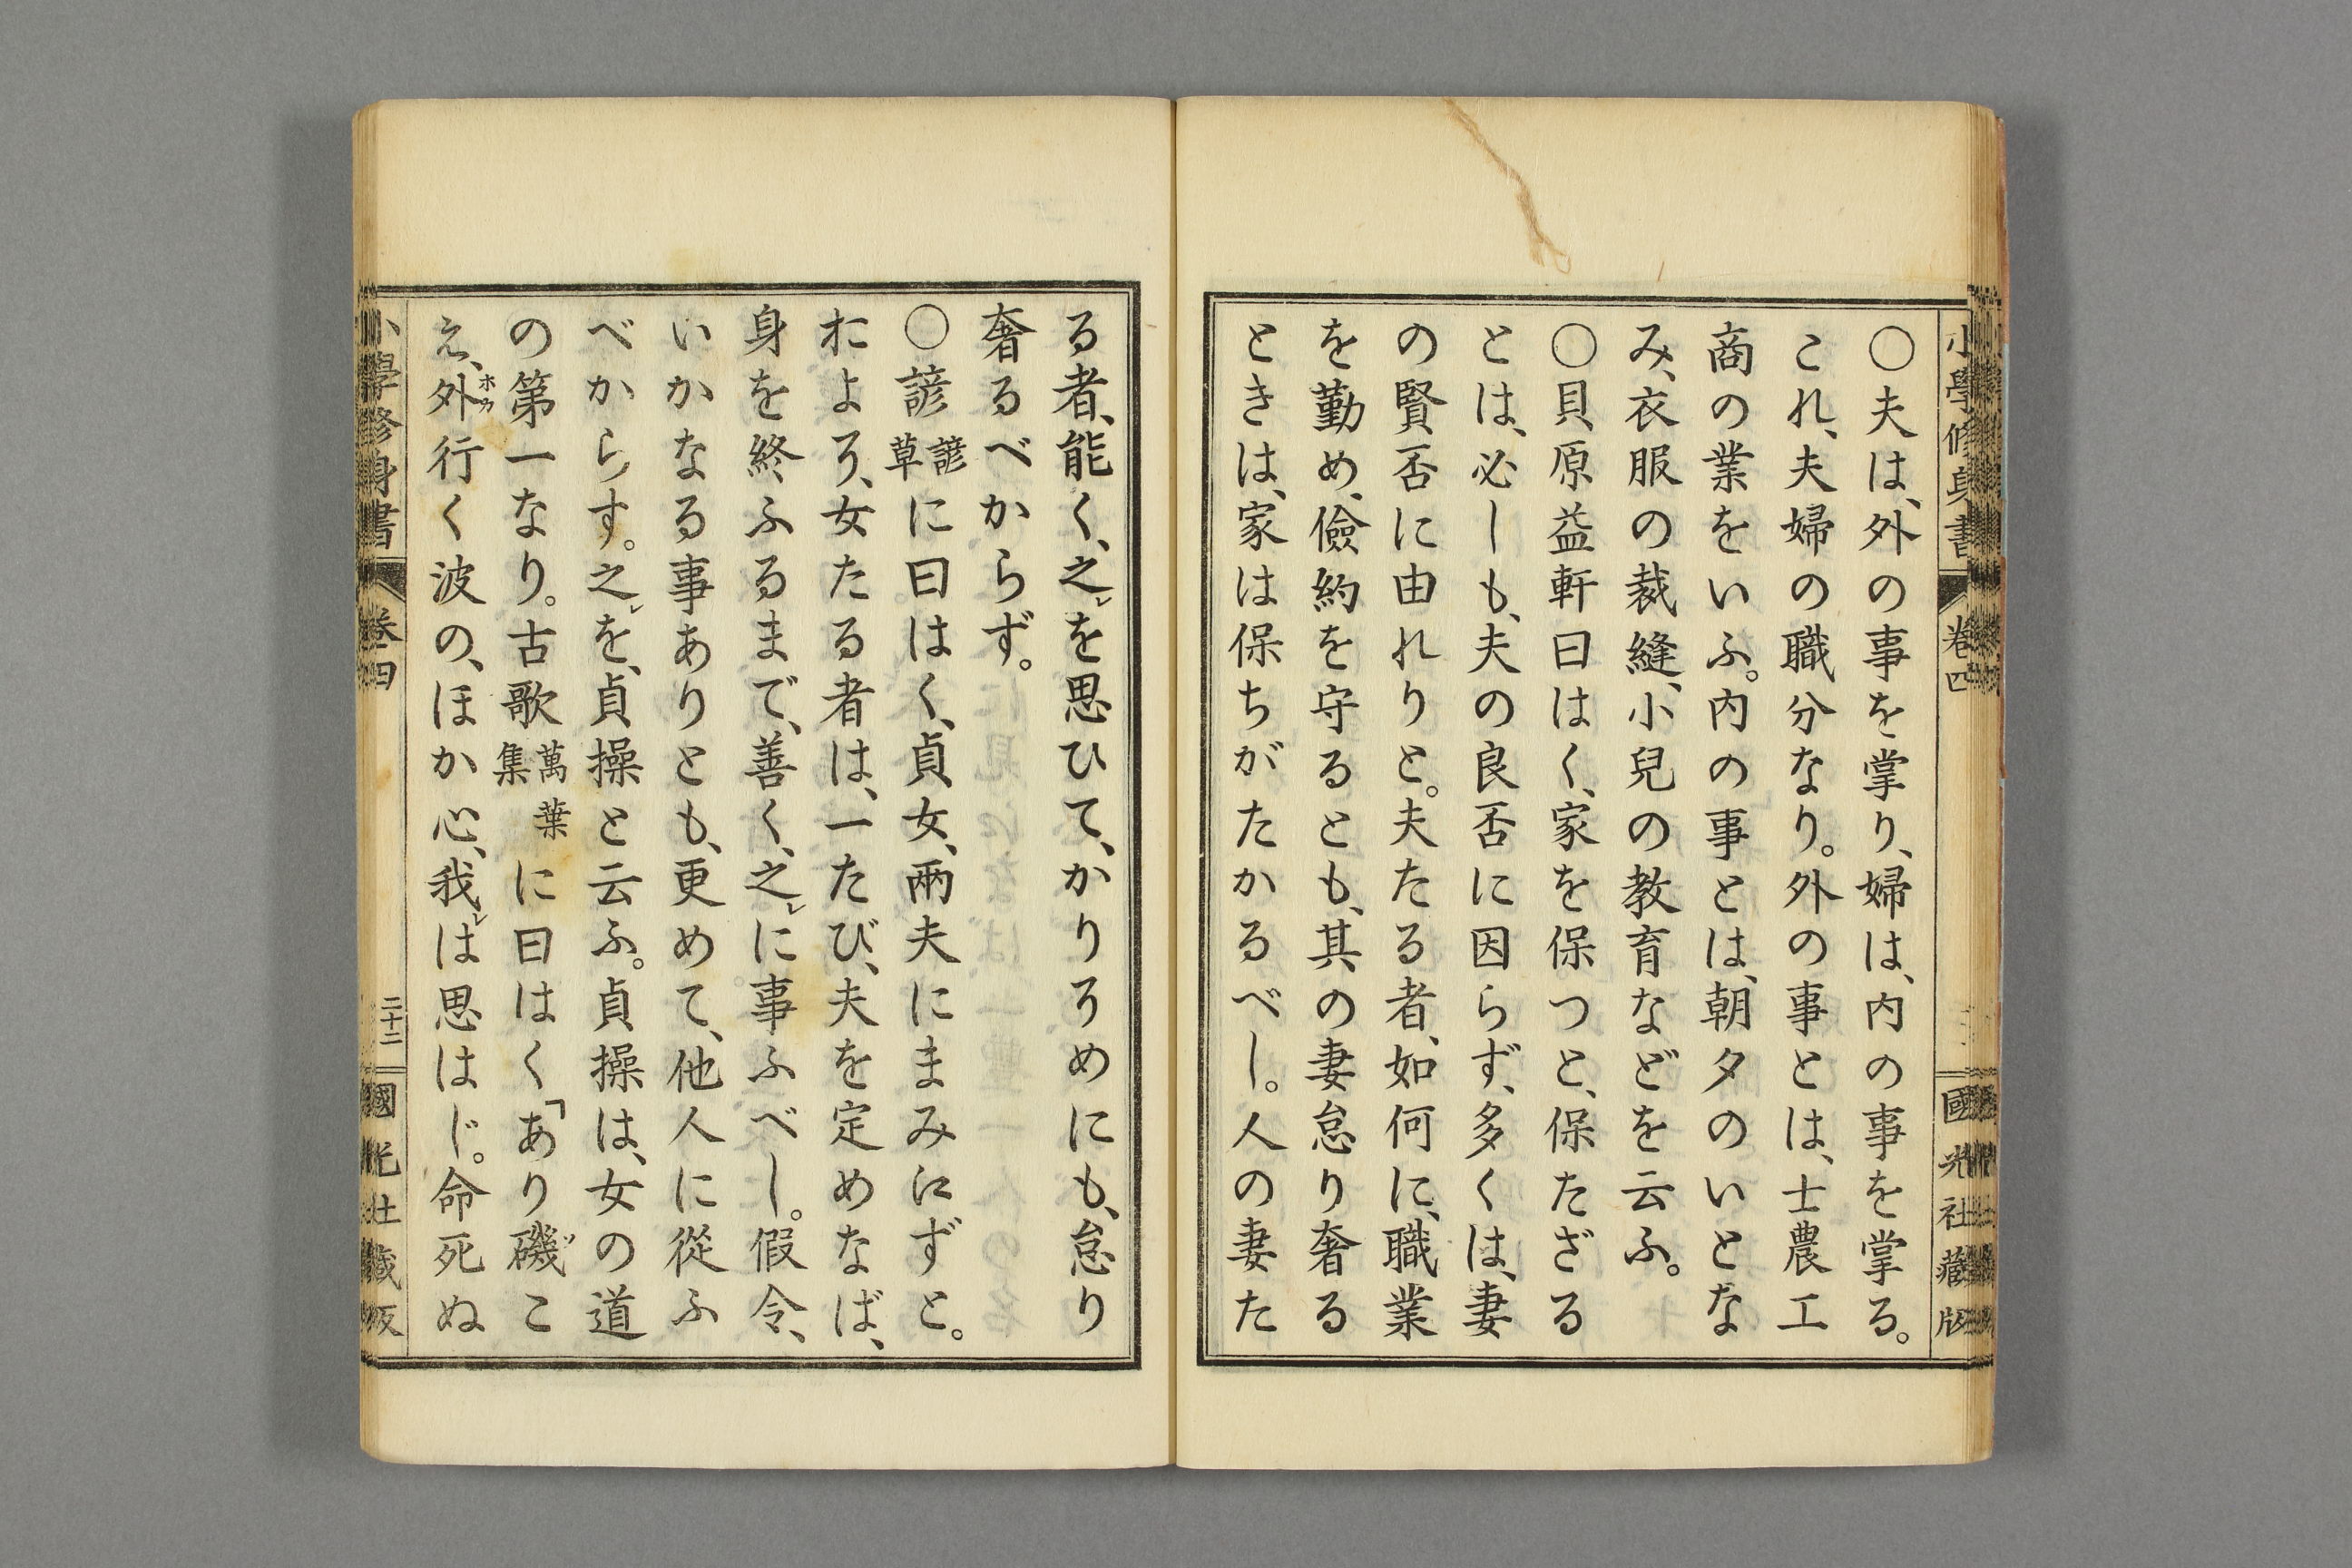 小學修身書 卷四 國光社藏版
〇夫は、外の事を掌り、婦は、内の事を掌る。
これ、夫婦の職分なり。外の事とは、士農工
商の業をいふ。内の事とは、朝夕のいとな
み、衣服の裁縫、小兒の教育などを云ふ。
〇貝原益軒曰はく、家を保つと、保たざる
とは、必しも、夫の良否に因らず、多くは、妻
の賢否に由れりと。夫たる者、如何に、職業
を勤め、儉約を守るとも、其の妻怠り奢る
ときは、家は保ちがたかるべし。人の妻た
る者、能く、之レを思ひて、かりろめにも、怠り
奢るべからず。
〇諺諺草に曰はく、貞女、兩夫にまみえずと。
およろ、女たる者は、一たび、夫を定めなば、
身を終ふるまで、善く、之レに事ふべし。假令、
いかなる事ありとも、更めて、他人に從ふ
べからす。之レを、貞操と云ふ。貞操は、女の道
の第一なり。古歌萬葉集に曰はく「あり磯ゾこ
え、外ホカ行く波の、ほか心、我レは思はじ。命死ぬ
小學修身書 卷四 二十二 國光社藏版